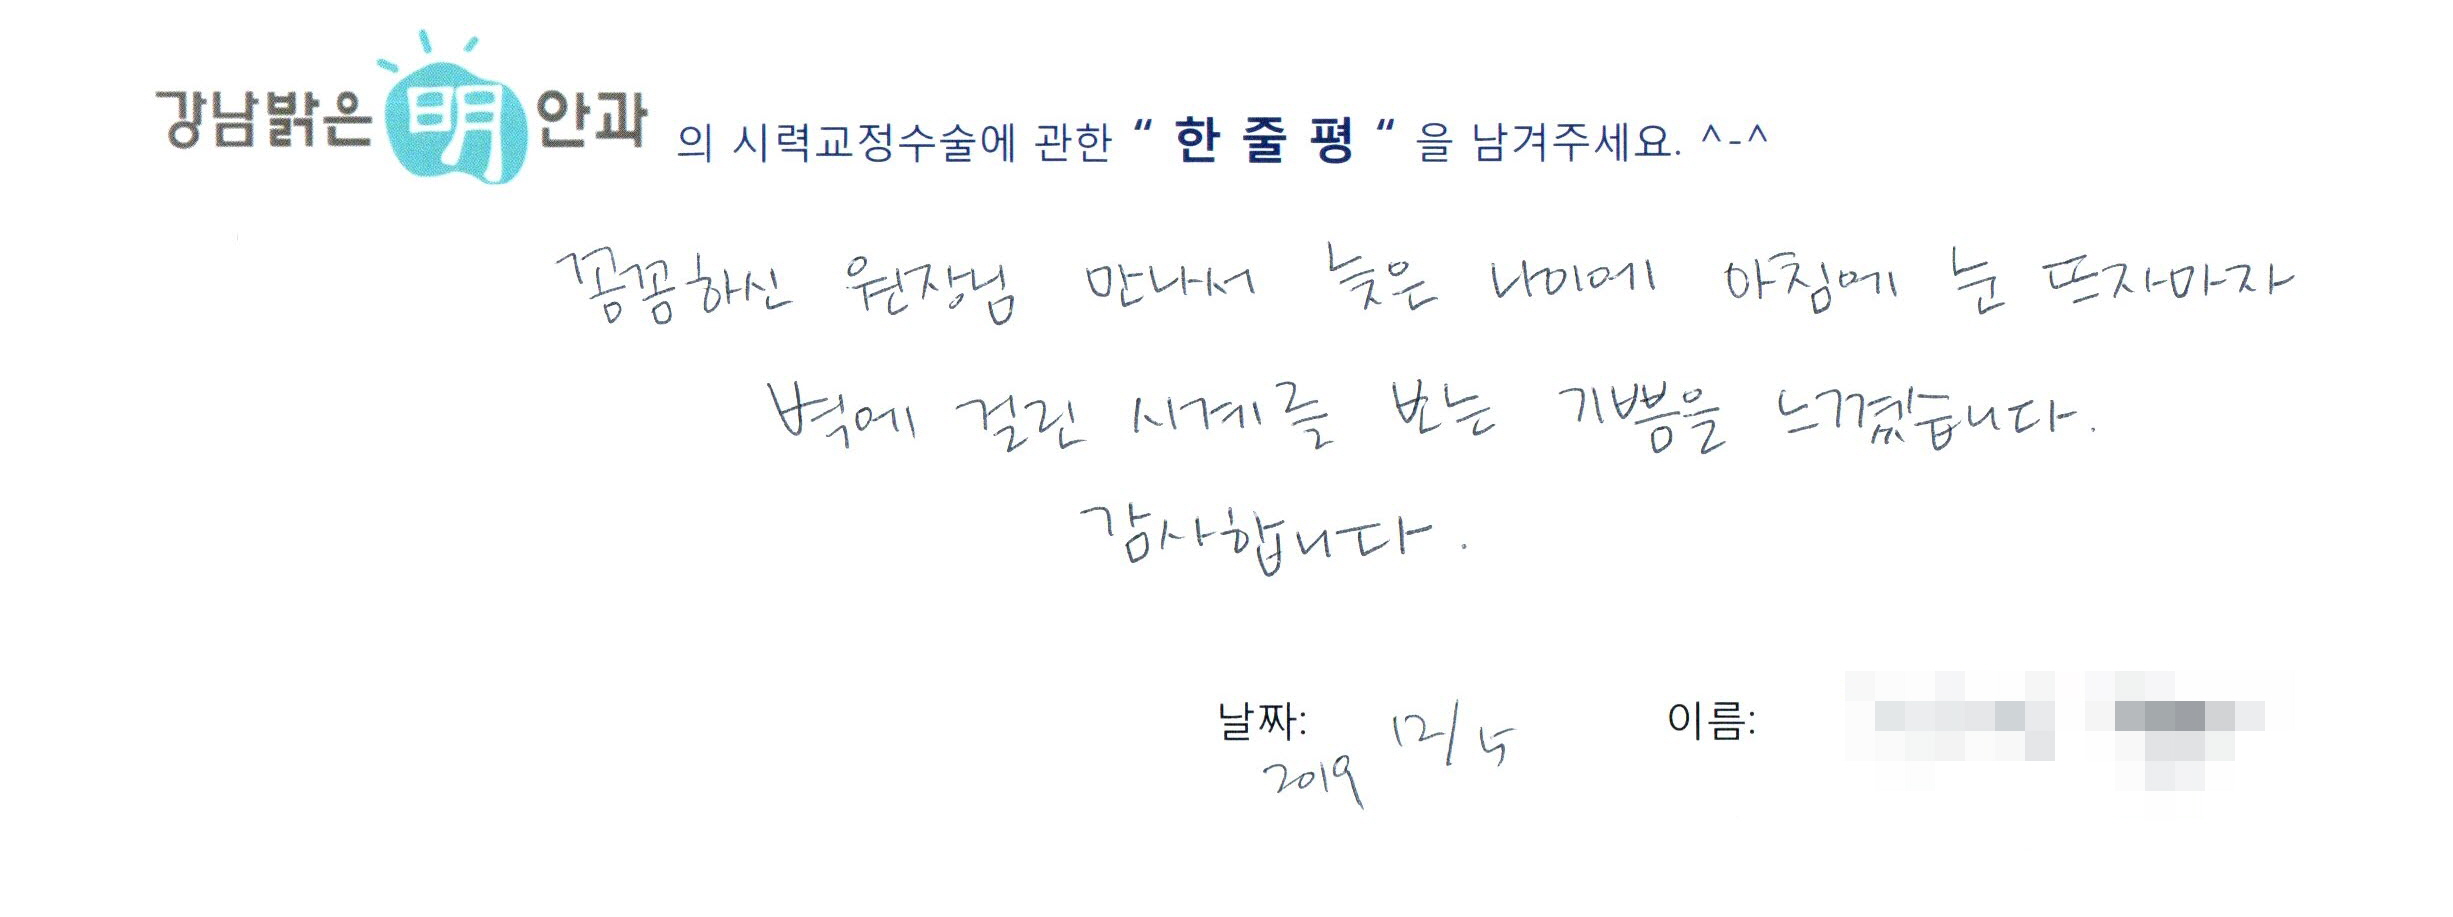 강남밝은明안과 의 시력교정수술에 관한 “ 한 줄 평 “ 을 남겨주세요. ^-^
꼼꼼하신 원장님 만나서 늦은 나이에 아침에 눈 뜨자마자
벽에 걸린 시계를 보는 기쁨을 느꼈습니다.
감사합니다.
날짜: 12/5 이름:
2019